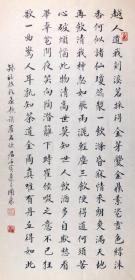 越人遺我剡溪茗採得金芽爨金鼎素瓷雪色縹沫
香何似諸仙瓊蕊漿一飲滌昏寐情來朗爽滿天地
再飲清我神忽如飛雨灑輕塵三飲便得道何須苦
心破煩惱此物清高世莫知世人飲酒多自欺愁看
畢卓甕間夜笑向陶潛籬下時崔侯啜之意不已狂
歌一曲驚人耳孰知茶道全爾真唯有丹丘得如此